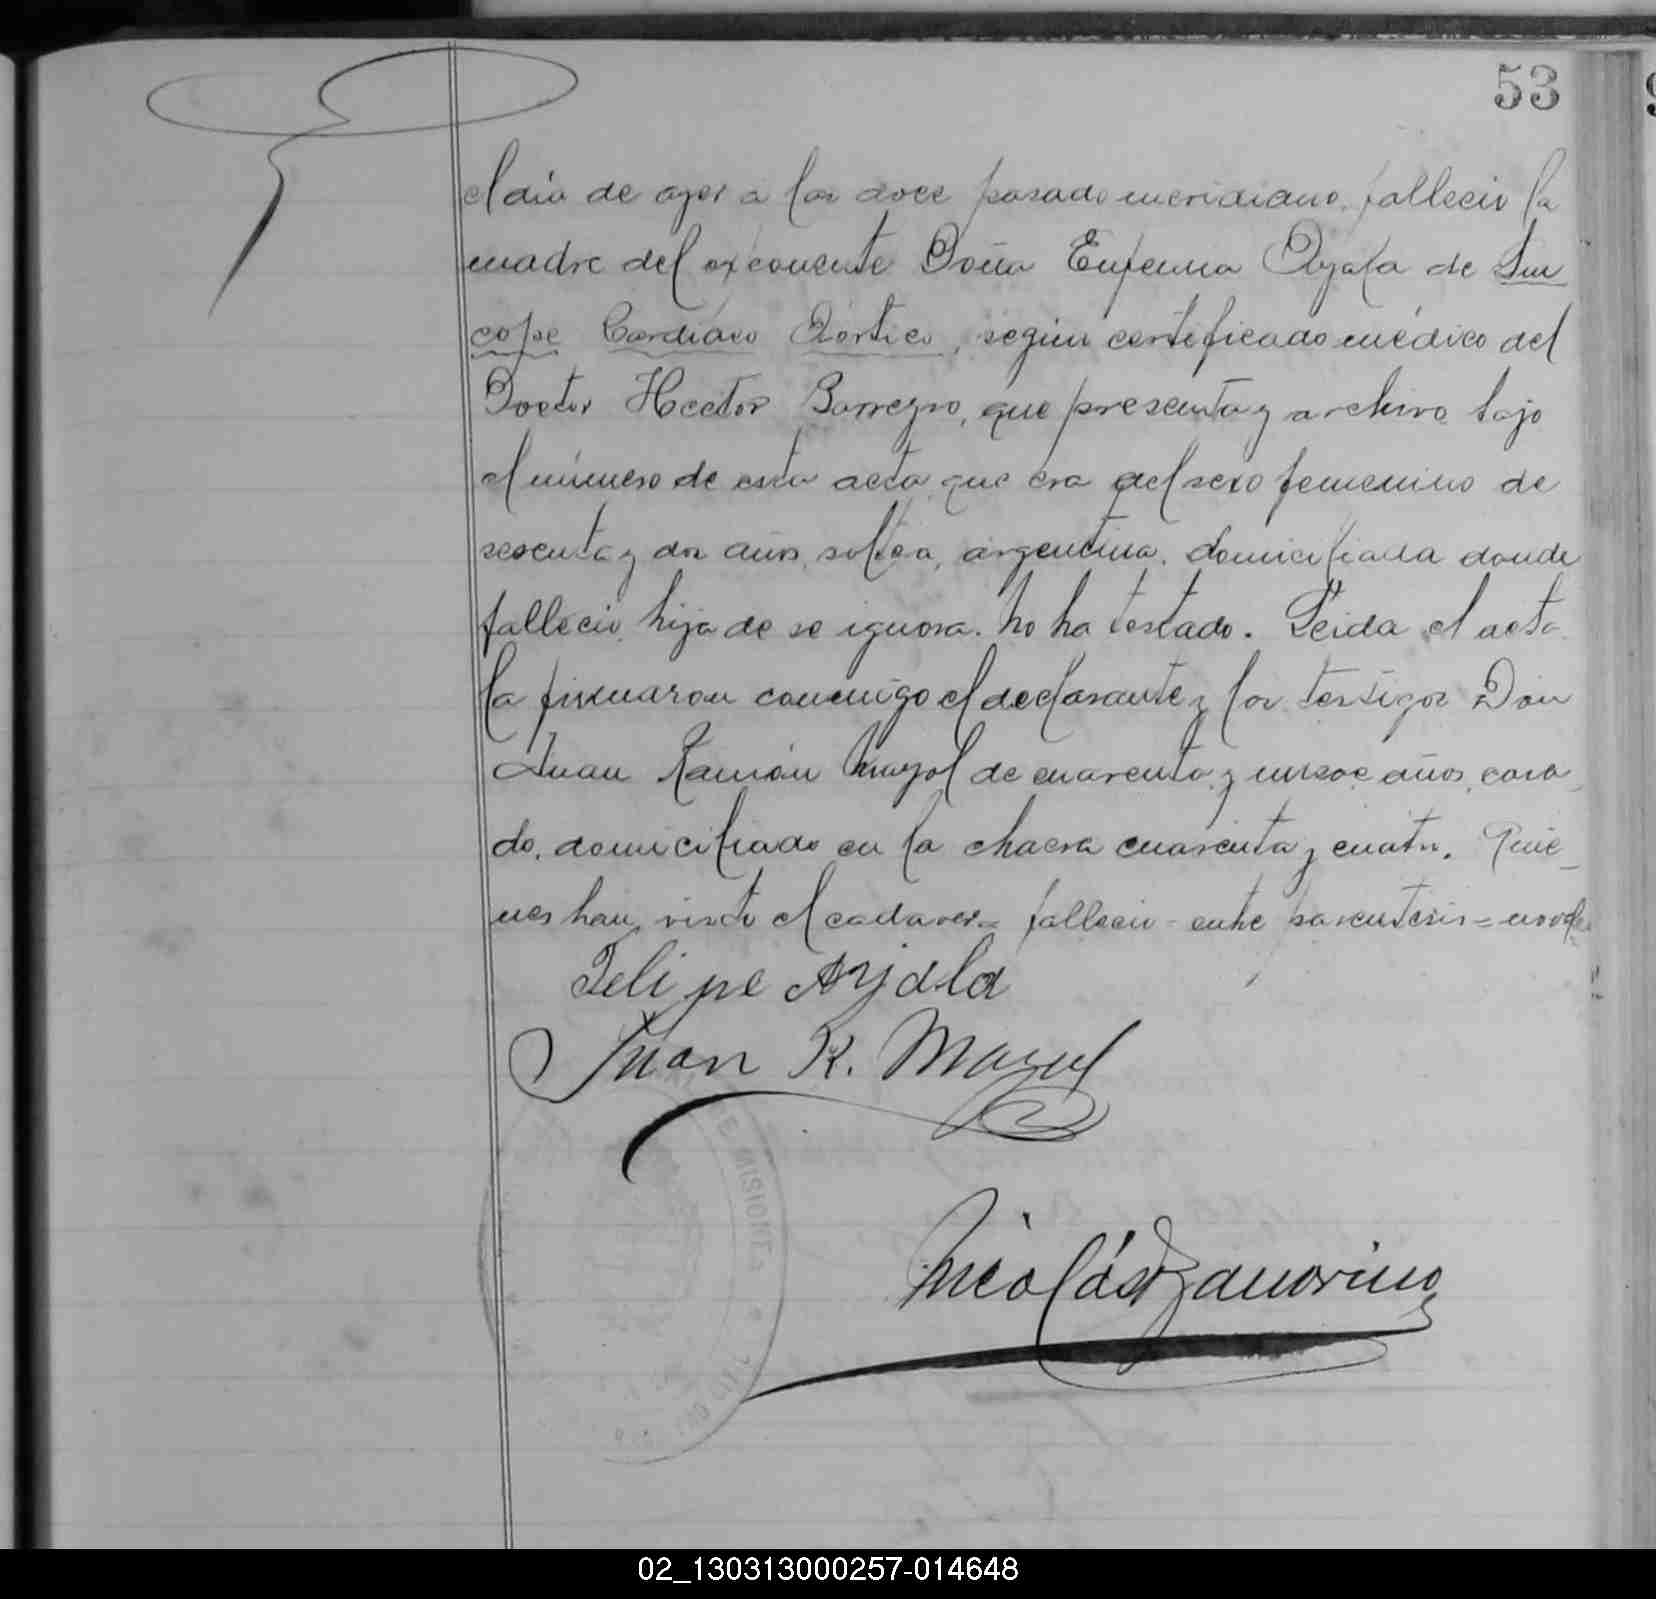 53
el día de ayer a las doce pasado meridiano, falleció la
madre del exponente Doña Eufemia Ayala de Sin
cope Cardíaco Aórtico, según certificado médico del
Doctor Hector Barreyro, que presenta y archivo bajo
el número de esta acta, que era del sexo femenino de
sesenta y dos años, soltera, argentina, domiciliada donde
falleció, hija de se ignora. No ha testado. Leida el acta
la firmaron conmigo el declarante y los testigos Don
Juan Ramón Mayol de cuarenta y años, casa
do, domiciliado en la chacra cuarenta y cuatro. Quie_
nes han visto el cadaver = falleció - entre parentesis =
Felipe Ayala
Juan R. Mayol
Nicolás Zamorino
DE MISIONES
02_130313000257-014648